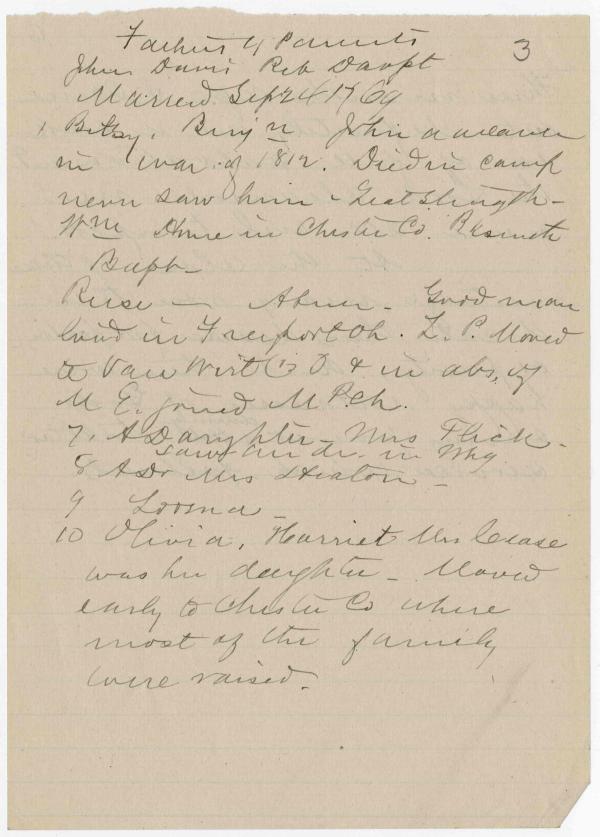 Father's Parents
3
John Davis Reb Davpt
Married Sept 24 1769
1 Betsy, Benjn John a weaver
in war of 1812. Died in camp
never saw him - Great strength -
Wm Done in Chester Co.
Bapt -
Reese — Abner - Good man
lived in Freeport Oh. L. P. Moved
to Van Wert Co O & in abs. of
M E. joined M. P. Ch.
7. A Daughter - Mrs Flick -
saw an dr. in Whg
8 A Dr Mrs Heaton -
9 Lorena -
10 Olivia, Harriet Mrs Cease
was her daughter - Moved
early to Chester Co where
most of the family
were raised.